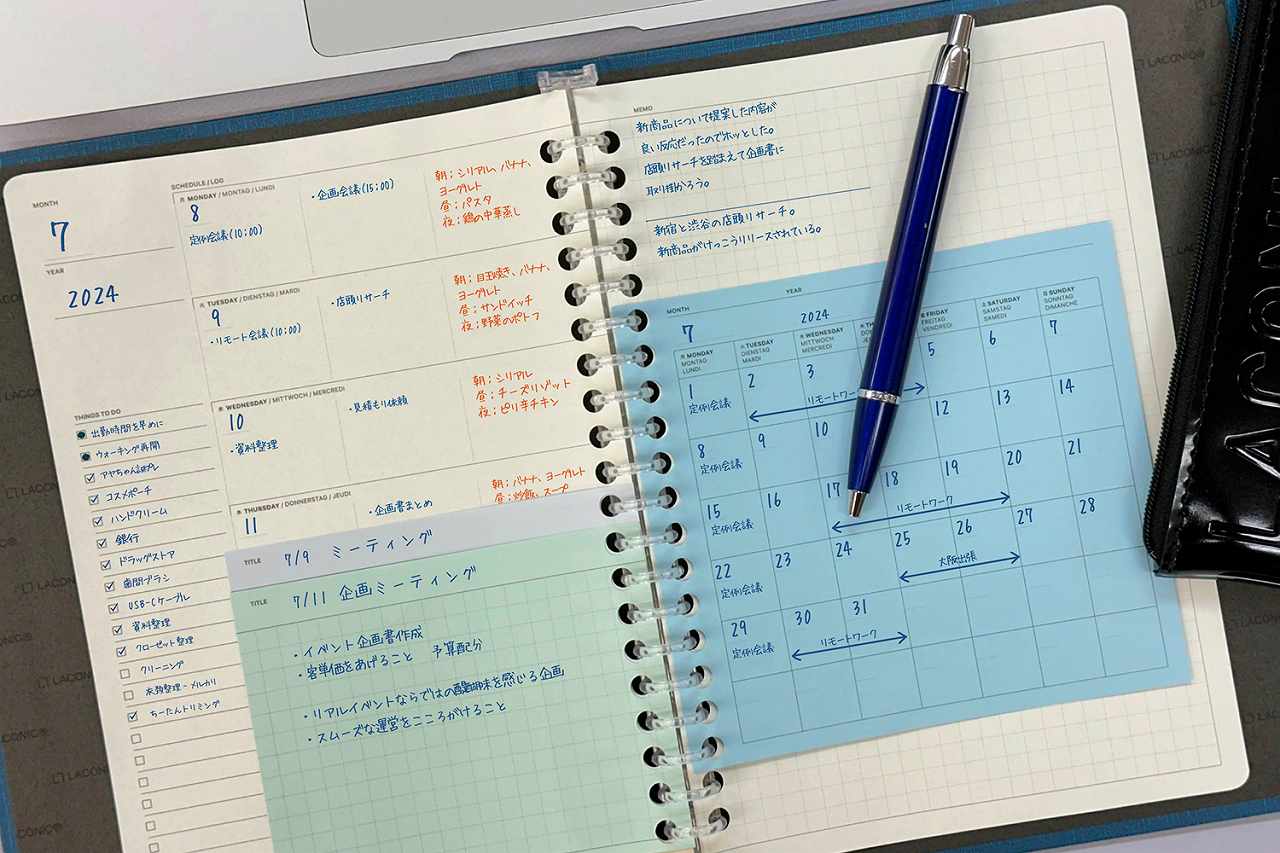 MONTH
7
YEAR
2024
SCHEDULE / LOG
月 MONDAY / MONTAG / LUNDI
8
定例会議(10:00)
・企画会議(15:00)
朝:シリアル、バナナ、
ヨーグルト
昼:パスタ
夜:鶏の中華蒸し
火 TUESDAY / DIENSTAG / MARDI
9
・リモート会議(10:00)
・店頭リサーチ
朝:目玉焼き、バナナ、
ヨーグルト
昼:サンドイッチ
夜:野菜のポトフ
水 WEDNESDAY / MITTWOCH / MERCREDI
10
・資料整理
・見積もり依頼
朝:シリアル
昼:チーズリゾット
夜:ピリ辛チキン
木 THURSDAY / DONNERSTAG / JEUDI
11
・企画書まとめ
朝:バナナ、ヨーグルト
昼:炒飯、スープ
THINGS TO DO
出勤時間を早めに
ウォーキング再開
アヤちゃん誕プレ
コスメポーチ
ハンドクリーム
銀行
ドラッグストア
歯間ブラシ
USB-Cケーブル
資料整理
クローゼット整理
クリーニング
衣類整理-メルカリ
ちーたんトリミング
TITLE 7/9 ミーティング
TITLE 7/11 企画ミーティング
・イベント企画書作成
・客単価をあげること 予算配分
・リアルイベントならではの醍醐味を感じる企画
・スムーズな運営をこころがけること
MEMO
新商品について提案した内容が
良い反応だったのでホッとした。
店頭リサーチを踏まえて企画書に
取り掛かろう。
新宿と渋谷の店頭リサーチ。
新商品がけっこうリリースされている。
MONTH
7
YEAR
2024
月 MONDAY
MONTAG
LUNDI
火 TUESDAY
DIENSTAG
MARDI
水 WEDNESDAY
MITTWOCH
MERCREDI
金 FRIDAY
FREITAG
VENDREDI
土 SATURDAY
SAMSTAG
SAMEDI
日 SUNDAY
SONNTAG
DIMANCHE
1 2 3 5 6 7
定例会議
リモートワーク
8 9 10 12 13 14
定例会議
15 16 17 18 19 20 21
定例会議
リモートワーク
22 23 24 25 26 27 28
定例会議
大阪出張
29 30 31
定例会議
リモートワーク
LACONIC®
LACONIC®
LACONIC®
LACONIC®
LACONIC